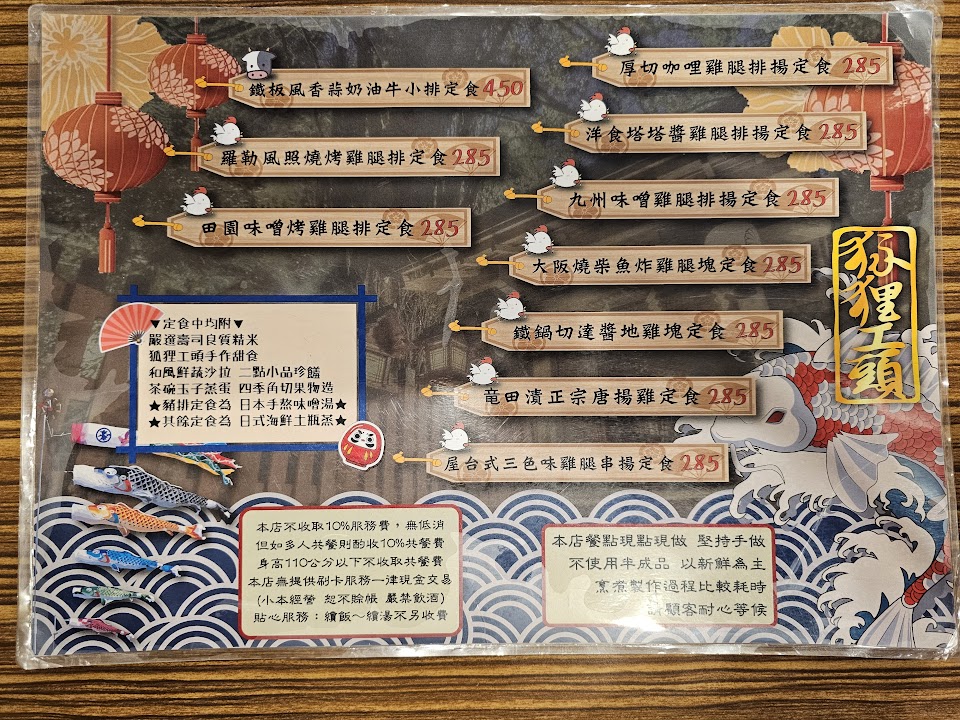 鐵板風香蒜奶油牛小排定食450
羅勒風照燒烤雞腿排定食285
田園味噌烤雞腿排定食285
厚切咖哩雞腿排揚定食285
洋食塔塔醬雞腿排揚定食285
九州味噌雞腿排揚定食285
大阪燒柴魚炸雞腿塊定食285
鐵鍋切達醬地雞塊定食285
竜田漬正宗唐揚雞定食285
屋台式三色味雞腿串揚定食285
狐狸工頭
▼定食中均附▼
嚴選壽司良質精米
狐狸工頭手作甜食
和風鮮蔬沙拉 二點小品珍饈
茶碗玉子蒸蛋 四季角切果物造
★豬排定食為 日本手熬味噌湯★
★其餘定食為 日式海鮮土瓶蒸★
本店不收取10%服務費，無低消
但如多人共餐則酌收10%共餐費
身高110公分以下不收取共餐費
本店無提供刷卡服務一律現金交易
(小本經營 恕不賒帳 嚴禁飲酒)
貼心服務：續飯～續湯不另收費
本店餐點現點現做 堅持手做
不使用半成品 以新鮮為主
烹煮製作過程比較耗時
顧客耐心等候